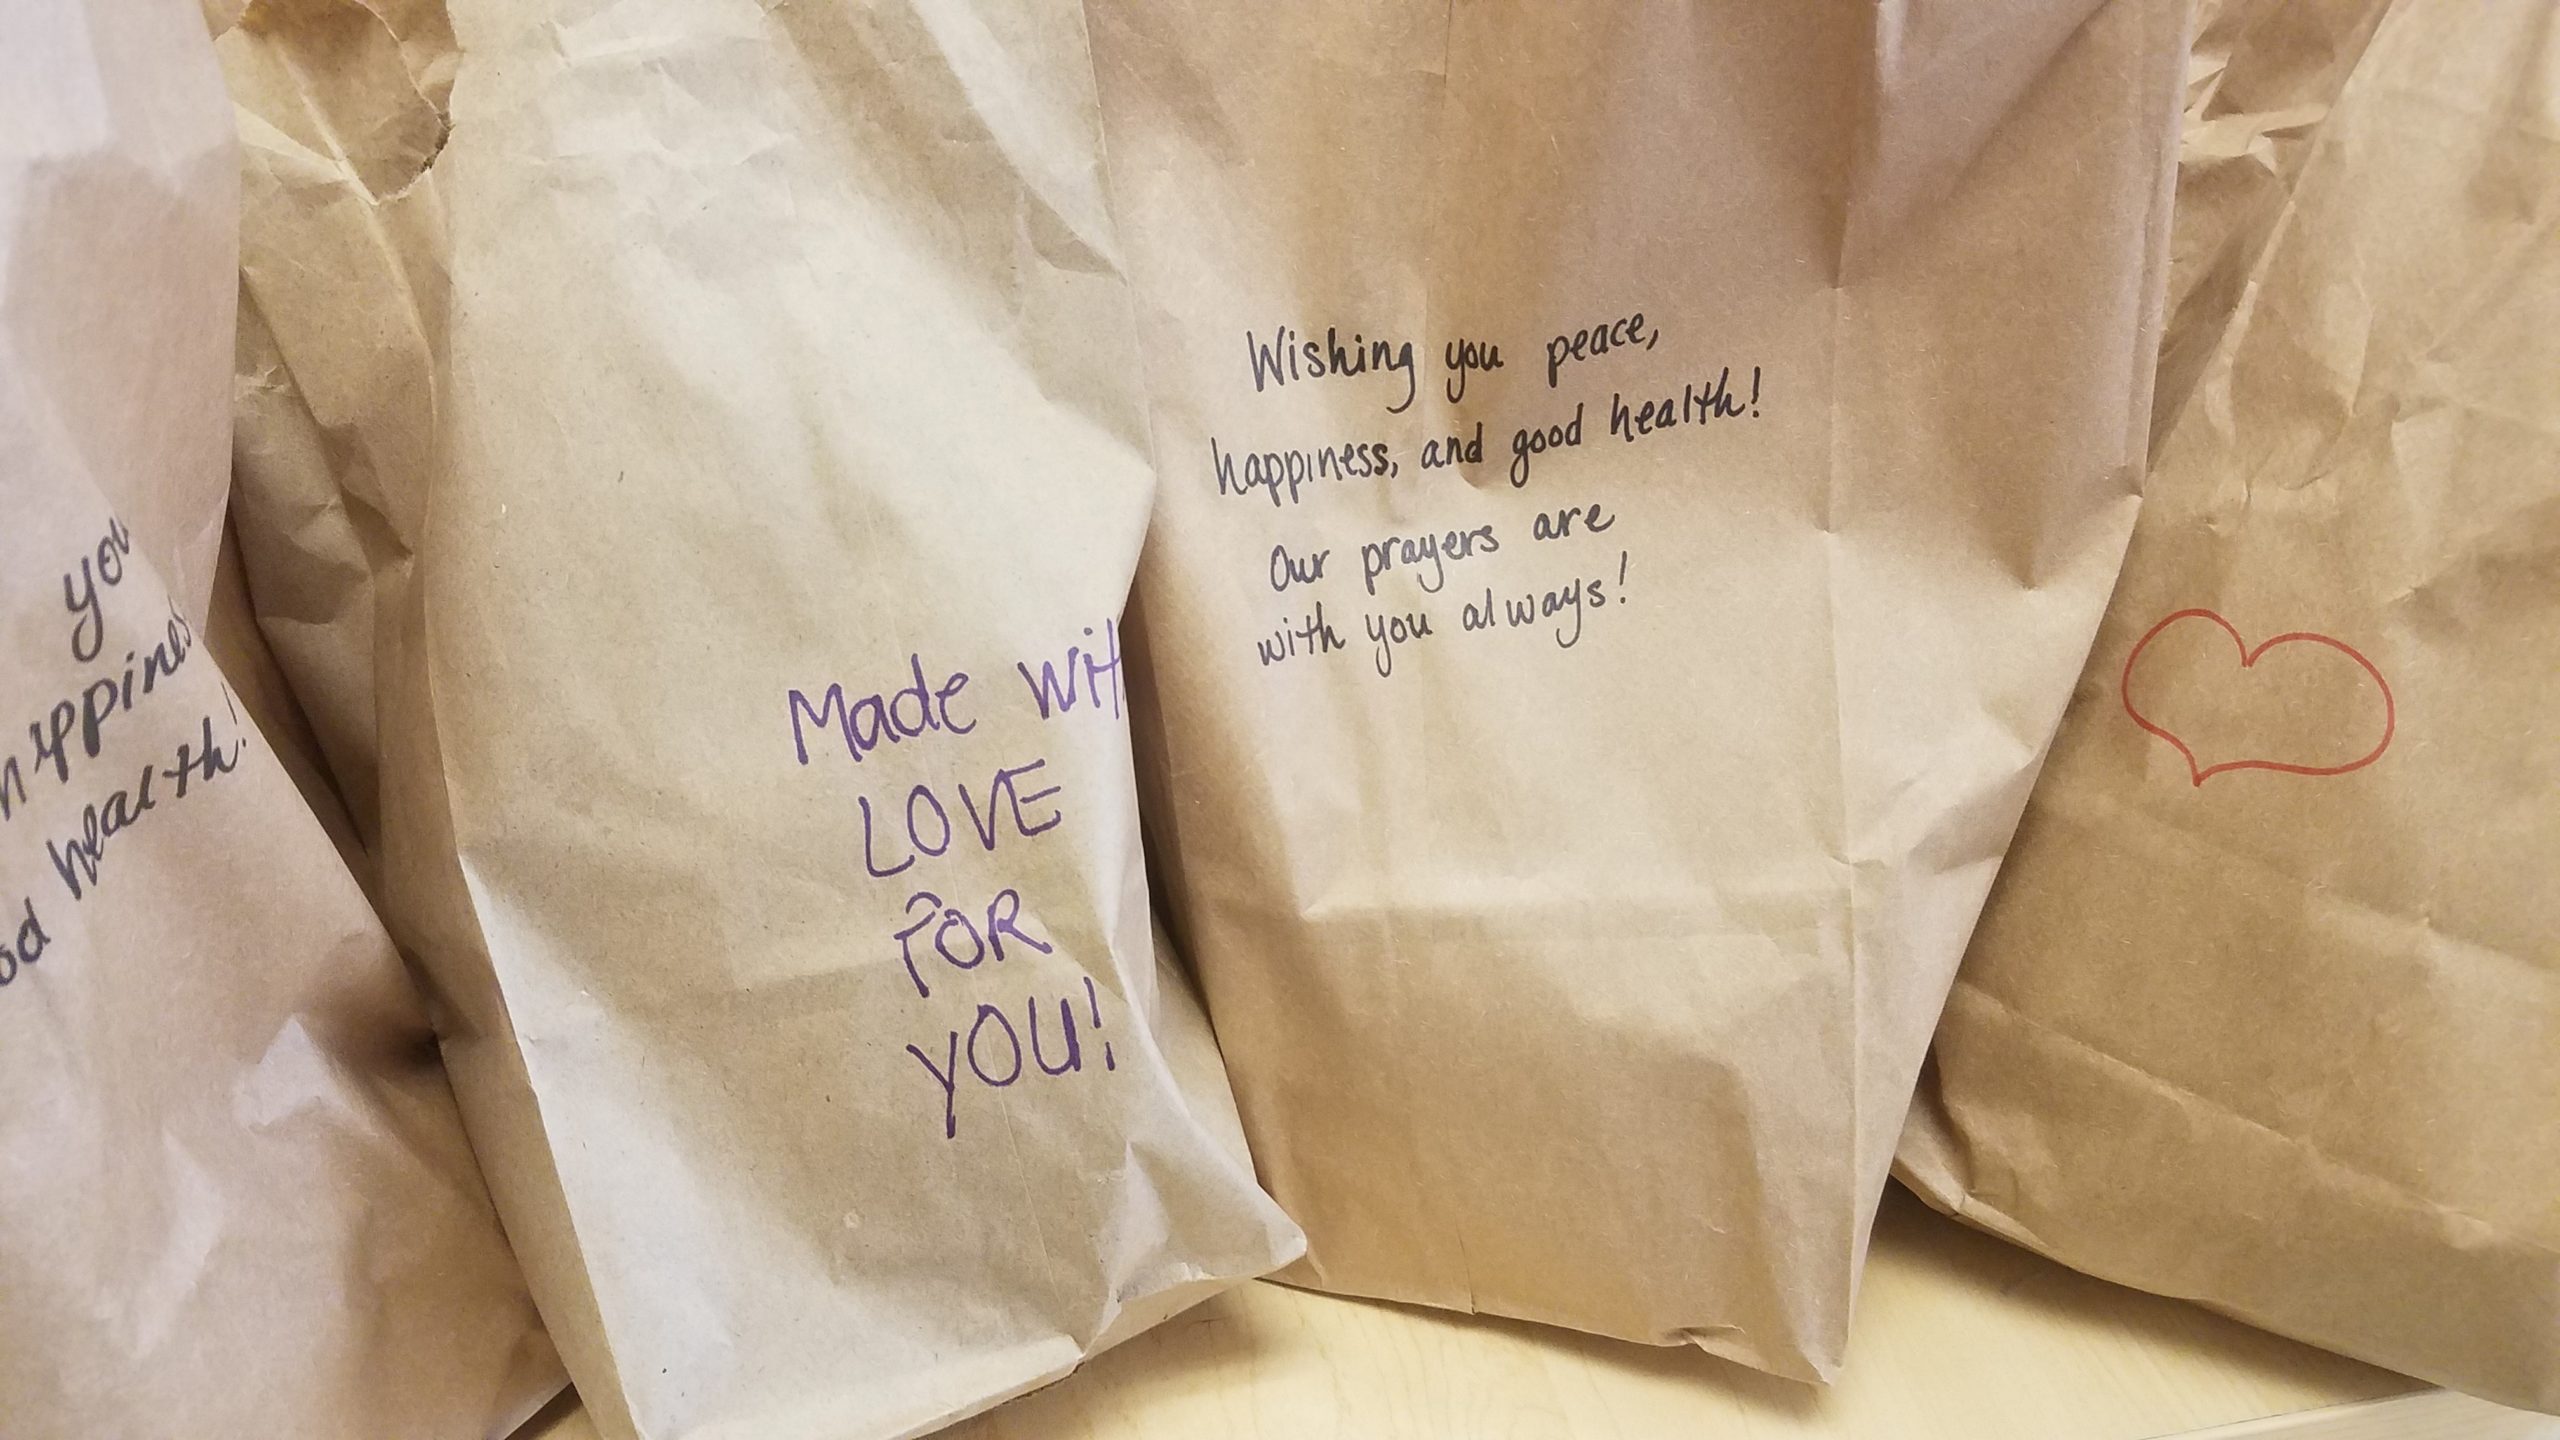 you
happiness
od health!
Made wit
LOVE
FOR
YOU!
Wishing you peace,
happiness, and good health!
Our prayers are
with you always!